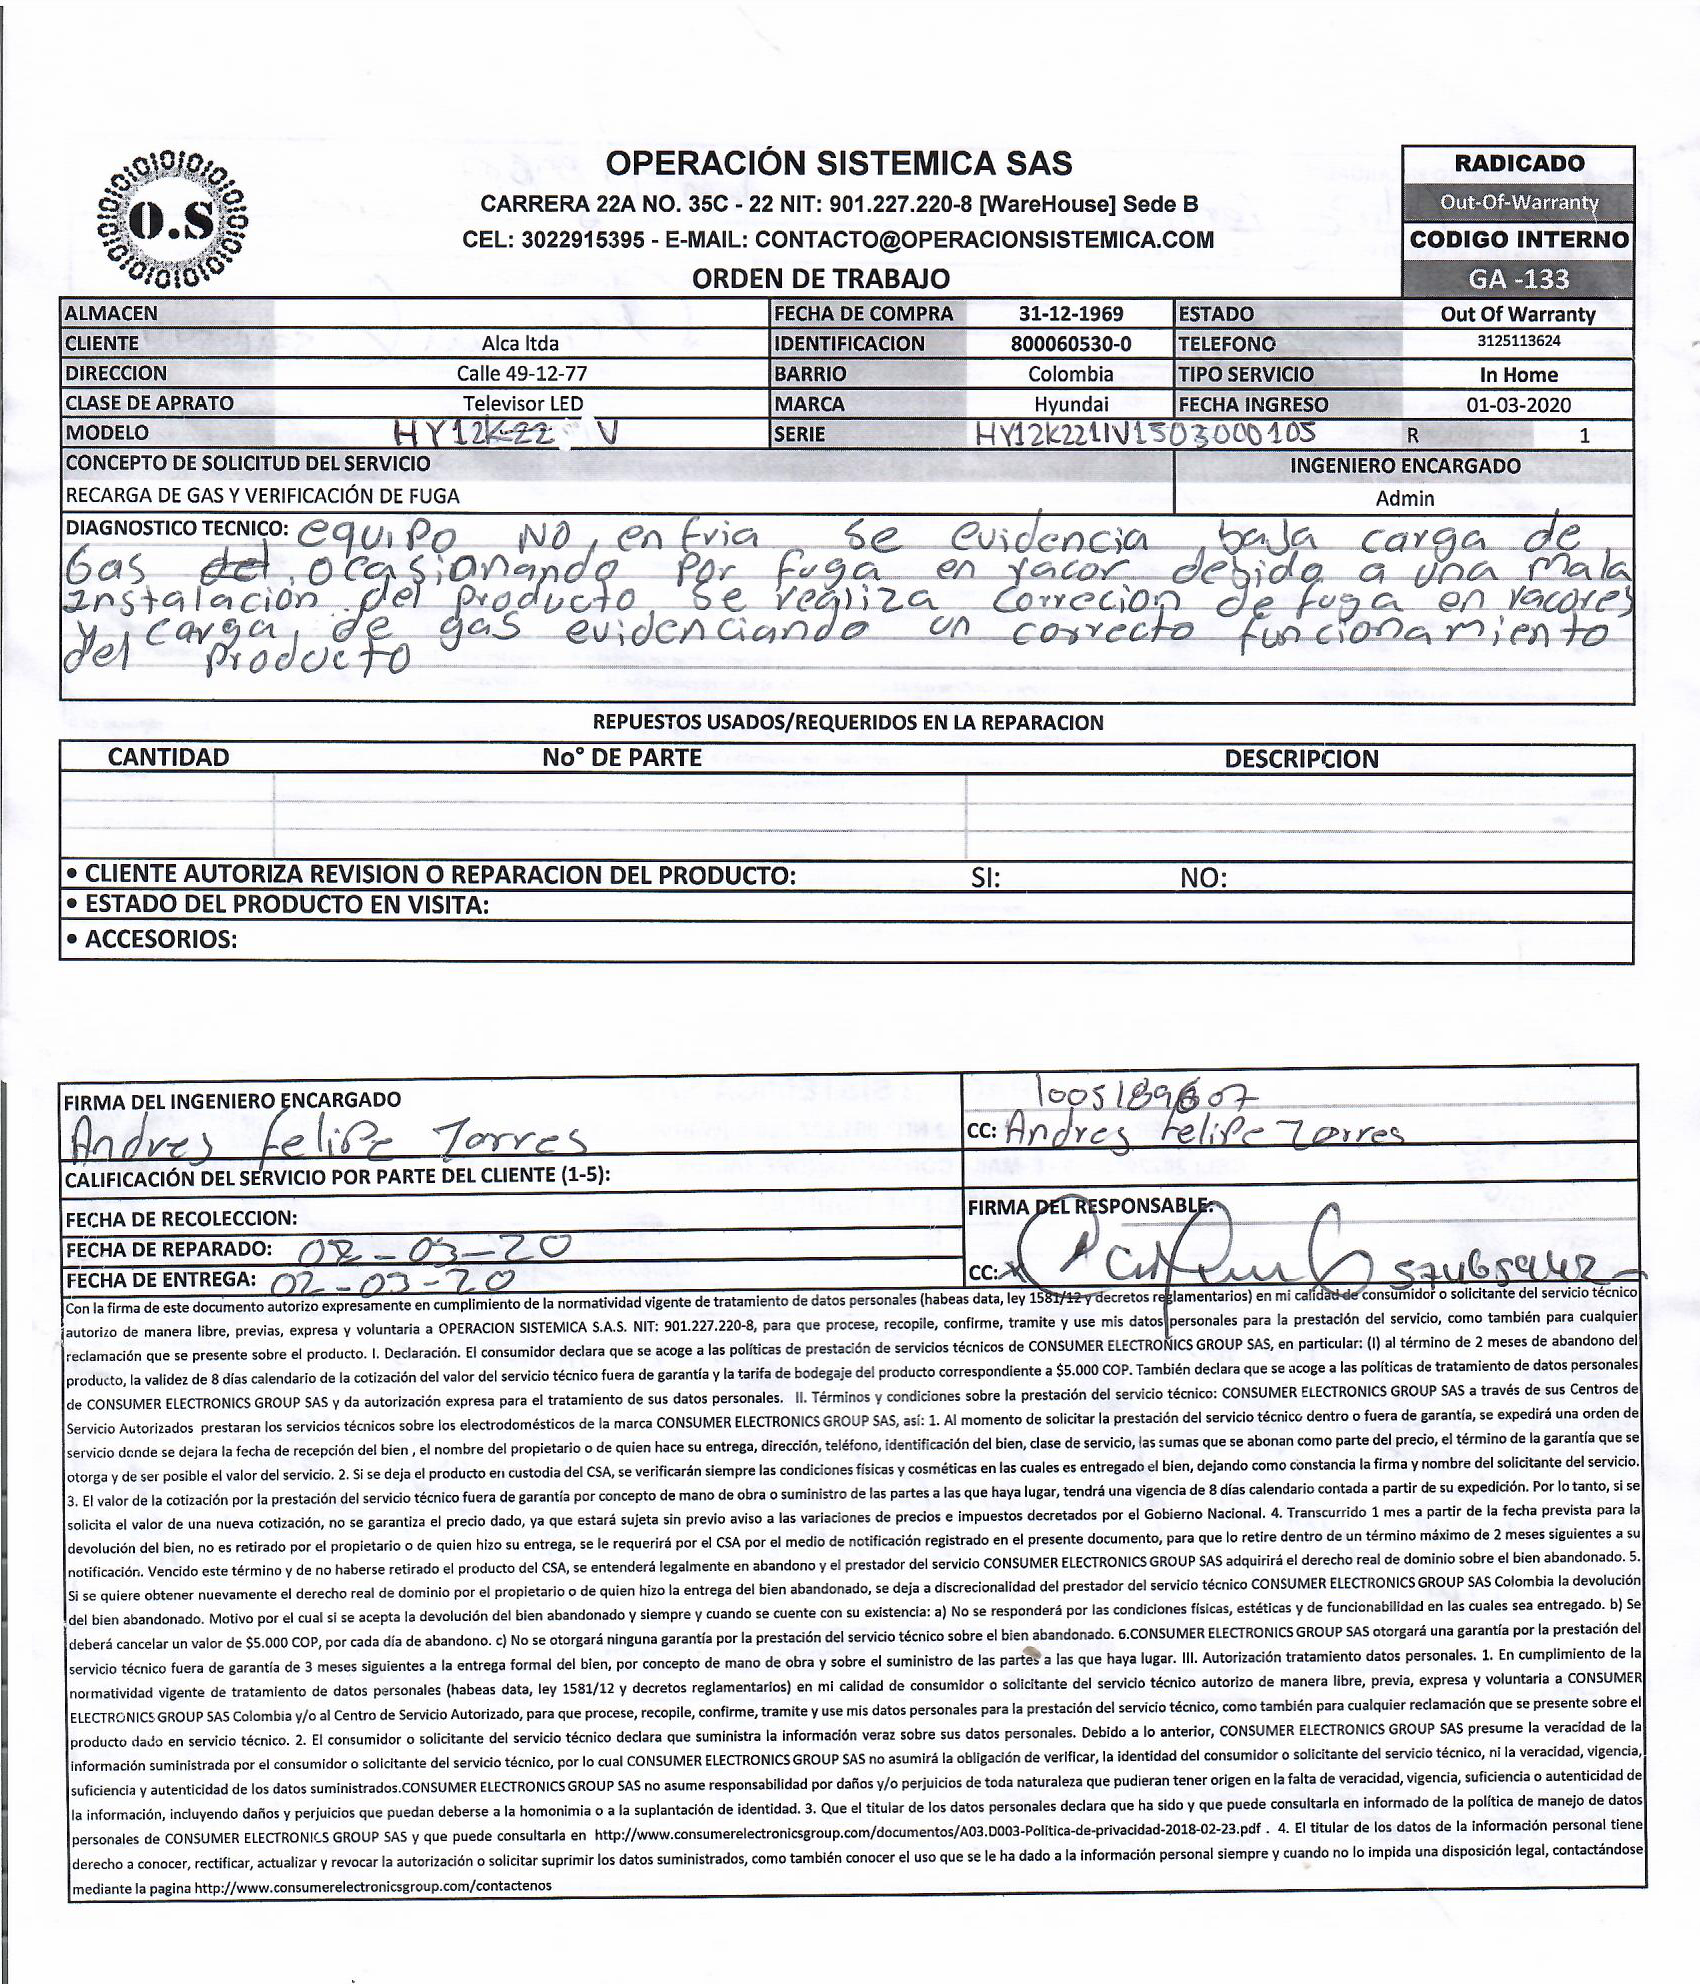 O.S
OPERACIÓN SISTEMICA SAS
CARRERA 22A NO. 35C - 22 NIT: 901.227.220-8 [WareHouse] Sede B
CEL: 3022915395 - E-MAIL: CONTACTO@OPERACIONSISTEMICA.COM
ORDEN DE TRABAJO
RADICADO
Out-Of-Warranty
CODIGO INTERNO
GA -133
ALMACEN FECHA DE COMPRA 31-12-1969 ESTADO Out Of Warranty
CLIENTE Alca ltda IDENTIFICACION 800060530-0 TELEFONO 3125113624
DIRECCION Calle 49-12-77 BARRIO Colombia TIPO SERVICIO In Home
CLASE DE APRATO Televisor LED MARCA Hyundai FECHA INGRESO 01-03-2020
MODELO HY12K22 V SERIE HY12K221IV1503000105 R 1
CONCEPTO DE SOLICITUD DEL SERVICIO INGENIERO ENCARGADO
RECARGA DE GAS Y VERIFICACIÓN DE FUGA Admin
DIAGNOSTICO TECNICO: equipo NO enfria se evidencia baja carga de
Gas ocasionando por fuga en racor debido a una mala
Instalacion del producto, se realiza correcion de fuga en racores
y carga de gas evidenciando un correcto funcionamiento
del producto
REPUESTOS USADOS/REQUERIDOS EN LA REPARACION
CANTIDAD No° DE PARTE DESCRIPCION
• CLIENTE AUTORIZA REVISION O REPARACION DEL PRODUCTO: SI: NO:
• ESTADO DEL PRODUCTO EN VISITA:
• ACCESORIOS:
FIRMA DEL INGENIERO ENCARGADO
Andres Felipe Torres
CC: Andres Felipe Torres
CALIFICACIÓN DEL SERVICIO POR PARTE DEL CLIENTE (1-5):
FECHA DE RECOLECCION:
FIRMA DEL RESPONSABLE:
FECHA DE REPARADO: 02-03-20
FECHA DE ENTREGA: 02-03-20
CC:
Con la firma de este documento autorizo expresamente en cumplimiento de la normatividad vigente de tratamiento de datos personales (habeas data, ley 1581/12 y decretos reglamentarios) en mi calidad de consumidor o solicitante del servicio técnico
autorizo de manera libre, previas, expresa y voluntaria a OPERACION SISTEMICA S.A.S. NIT: 901.227.220-8, para que procese, recopile, confirme, tramite y use mis datos personales para la prestación del servicio, como también para cualquier
reclamación que se presente sobre el producto. I. Declaración. El consumidor declara que se acoge a las políticas de prestación de servicios técnicos de CONSUMER ELECTRONICS GROUP SAS, en particular: (I) al término de 2 meses de abandono del
producto, la validez de 8 días calendario de la cotización del valor del servicio técnico fuera de garantía y la tarifa de bodegaje del producto correspondiente a $5.000 COP. También declara que se acoge a las políticas de tratamiento de datos personales
de CONSUMER ELECTRONICS GROUP SAS y da autorización expresa para el tratamiento de sus datos personales. II. Términos y condiciones sobre la prestación del servicio técnico: CONSUMER ELECTRONICS GROUP SAS a través de sus Centros de
Servicio Autorizados prestaran los servicios técnicos sobre los electrodomésticos de la marca CONSUMER ELECTRONICS GROUP SAS, así: 1. Al momento de solicitar la prestación del servicio técnico dentro o fuera de garantía, se expedirá una orden de
servicio donde se dejara la fecha de recepción del bien , el nombre del propietario o de quien hace su entrega, dirección, teléfono, identificación del bien, clase de servicio, las sumas que se abonan como parte del precio, el término de la garantía que se
otorga y de ser posible el valor del servicio. 2. Si se deja el producto en custodia del CSA, se verificarán siempre las condiciones físicas y cosméticas en las cuales es entregado el bien, dejando como constancia la firma y nombre del solicitante del servicio.
3. El valor de la cotización por la prestación del servicio técnico fuera de garantía por concepto de mano de obra o suministro de las partes a las que haya lugar, tendrá una vigencia de 8 días calendario contada a partir de su expedición. Por lo tanto, si se
solicita el valor de una nueva cotización, no se garantiza el precio dado, ya que estará sujeta sin previo aviso a las variaciones de precios e impuestos decretados por el Gobierno Nacional. 4. Transcurrido 1 mes a partir de la fecha prevista para la
devolución del bien, no es retirado por el propietario o de quien hizo su entrega, se le requerirá por el CSA por el medio de notificación registrado en el presente documento, para que lo retire dentro de un término máximo de 2 meses siguientes a su
notificación. Vencido este término y de no haberse retirado el producto del CSA, se entenderá legalmente en abandono y el prestador del servicio CONSUMER ELECTRONICS GROUP SAS adquirirá el derecho real de dominio sobre el bien abandonado. 5.
Si se quiere obtener nuevamente el derecho real de dominio por el propietario o de quien hizo la entrega del bien abandonado, se deja a discrecionalidad del prestador del servicio técnico CONSUMER ELECTRONICS GROUP SAS Colombia la devolución
del bien abandonado. Motivo por el cual si se acepta la devolución del bien abandonado y siempre y cuando se cuente con su existencia: a) No se responderá por las condiciones físicas, estéticas y de funcionabilidad en las cuales sea entregado. b) Se
deberá cancelar un valor de $5.000 COP, por cada día de abandono. c) No se otorgará ninguna garantía por la prestación del servicio técnico sobre el bien abandonado. 6.CONSUMER ELECTRONICS GROUP SAS otorgará una garantía por la prestación del
servicio técnico fuera de garantía de 3 meses siguientes a la entrega formal del bien, por concepto de mano de obra y sobre el suministro de las partes a las que haya lugar. III. Autorización tratamiento datos personales. 1. En cumplimiento de la
normatividad vigente de tratamiento de datos personales (habeas data, ley 1581/12 y decretos reglamentarios) en mi calidad de consumidor o solicitante del servicio técnico autorizo de manera libre, previa, expresa y voluntaria a CONSUMER
ELECTRONICS GROUP SAS Colombia y/o al Centro de Servicio Autorizado, para que procese, recopile, confirme, tramite y use mis datos personales para la prestación del servicio técnico, como también para cualquier reclamación que se presente sobre el
producto dado en servicio técnico. 2. El consumidor o solicitante del servicio técnico declara que suministra la información veraz sobre sus datos personales. Debido a lo anterior, CONSUMER ELECTRONICS GROUP SAS presume la veracidad de la
información suministrada por el consumidor o solicitante del servicio técnico, por lo cual CONSUMER ELECTRONICS GROUP SAS no asumirá la obligación de verificar, la identidad del consumidor o solicitante del servicio técnico, ni la veracidad, vigencia,
suficiencia y autenticidad de los datos suministrados.CONSUMER ELECTRONICS GROUP SAS no asume responsabilidad por daños y/o perjuicios de toda naturaleza que pudieran tener origen en la falta de veracidad, vigencia, suficiencia o autenticidad de
la información, incluyendo daños y perjuicios que puedan deberse a la homonimia o a la suplantación de identidad. 3. Que el titular de los datos personales declara que ha sido y que puede consultarla en informado de la política de manejo de datos
personales de CONSUMER ELECTRONICS GROUP SAS y que puede consultarla en http://www.consumerelectronicsgroup.com/documentos/A03.D003-Politica-de-privacidad-2018-02-23.pdf . 4. El titular de los datos de la información personal tiene
derecho a conocer, rectificar, actualizar y revocar la autorización o solicitar suprimir los datos suministrados, como también conocer el uso que se le ha dado a la información personal siempre y cuando no lo impida una disposición legal, contactándose
mediante la pagina http://www.consumerelectronicsgroup.com/contactenos